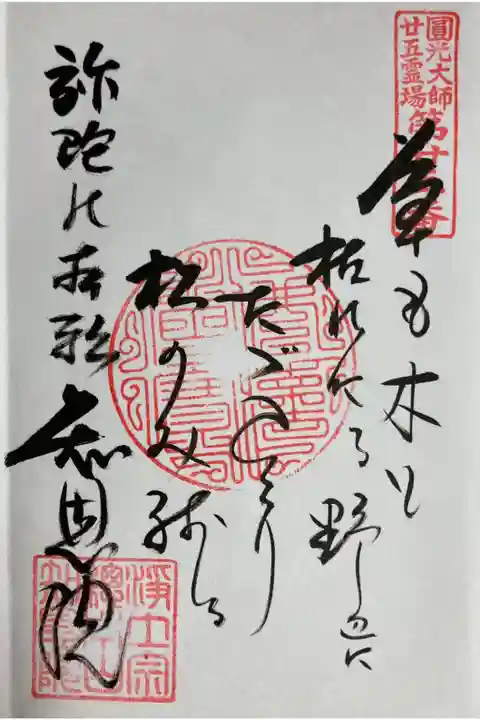 圓光大師
廿五霊場
第廿五番
草も木も
枯れたる野辺に
たゞひとり
松のみ残る
弥陀の本願
知恩院
浄土宗
總本山
知恩院